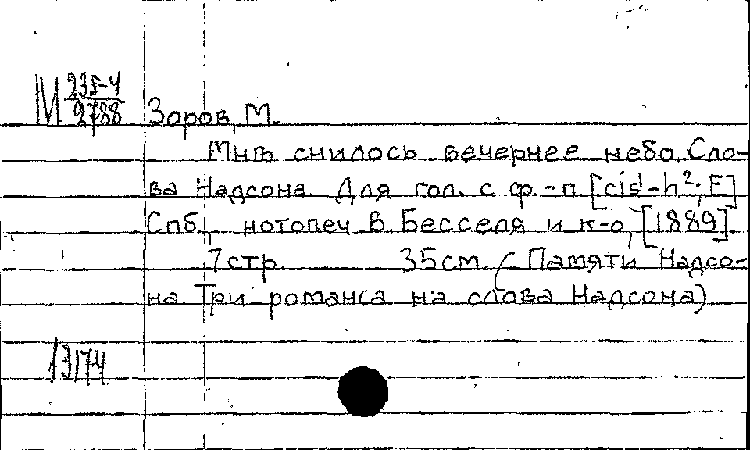 М 235-4
2788 Заров, М.
Мнѣ снилось вечернее небо. Сло-
ва Надсона. Для гол. с ф.-п [cis¹-h²; E]
Спб., нотопеч В. Бесселя и к-о, [1889].
7 стр. 35 см. (Памяти Надсо-
на Три романса на слова Надсона)
13174